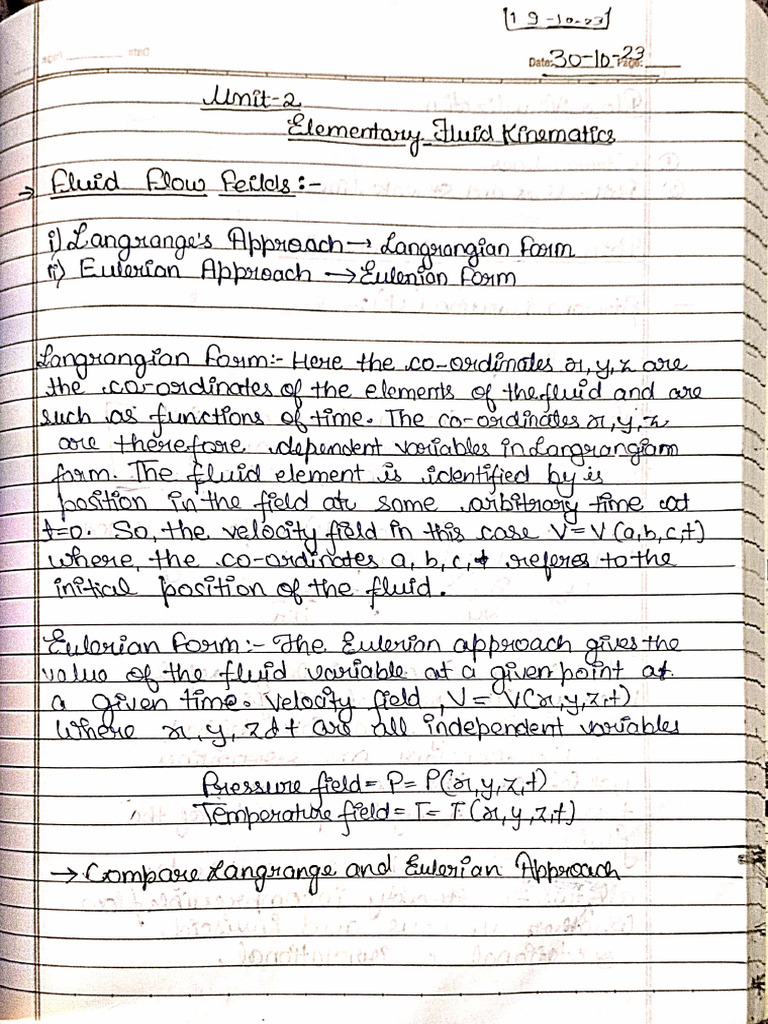 19-10-23
Date: 30-10-23
Unit-2
Elementary Fluid Kinematics
→ Fluid Flow Feilds:-
i) Langrange's Approach → Langrangian Form
ii) Eulerian Approach → Eulerian Form
Langrangian Form:- Here the co-ordinates x, y, z are
the co-ordinates of the elements of the fluid and are
such as functions of time. The co-ordinates x, y, z
are therefore dependent variables in Langrangian
form. The fluid element is identified by is
position in the field at some arbitrary time at
t=0. So, the velocity field in this case V=V(a,b,c,t)
where, the co-ordinates a, b, c, referes to the
initial position of the fluid.
Eulerian Form:- The Eulerian approach gives the
value of the fluid variable at a given point at
a given time. Velocity field, V = V(x,y,z,t)
Where x, y, z & t are all independent variables
Pressure field = P = P(x,y,z,t)
Temperature field = T = T(x,y,z,t)
→ Compare Langrange and Eulerian Approach